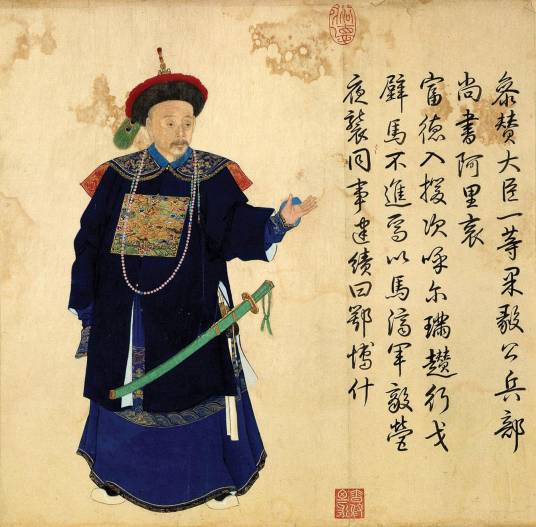 叅賛大臣一等果毅公兵部
尚書阿里衮
富德入援次呼尔璊趲行戈
壁馬不進焉以馬濟軍敵營
夜襲同事建績曰鄂博什